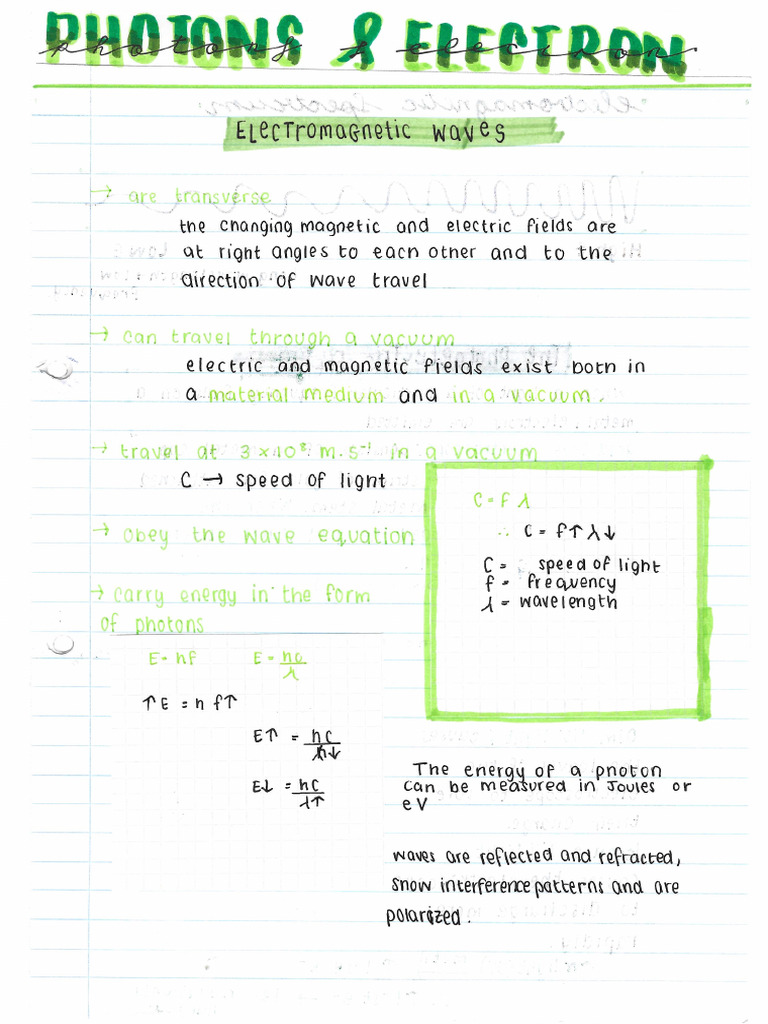 PHOTONS & ELECTRON
photons & electron
ELECTROMAGNETIC WAVES
→ are transverse
the changing magnetic and electric fields are
at right angles to each other and to the
direction of wave travel
→ can travel through a vacuum
electric and magnetic fields exist both in
a material medium and in a vacuum.
→ travel at 3 × 10⁸ m.s⁻¹ in a vacuum
C → speed of light
→ obey the wave equation
C = f λ
∴ C = f↑ λ↓
C = speed of light
f = frequency
λ = wavelength
→ carry energy in the form
of photons
E = hf E = hc/λ
↑E = h f↑
E↑ = hc/λ↓
E↓ = hc/λ↑
The energy of a photon
can be measured in Joules or
eV
waves are reflected and refracted,
show interference patterns and are
polarized.